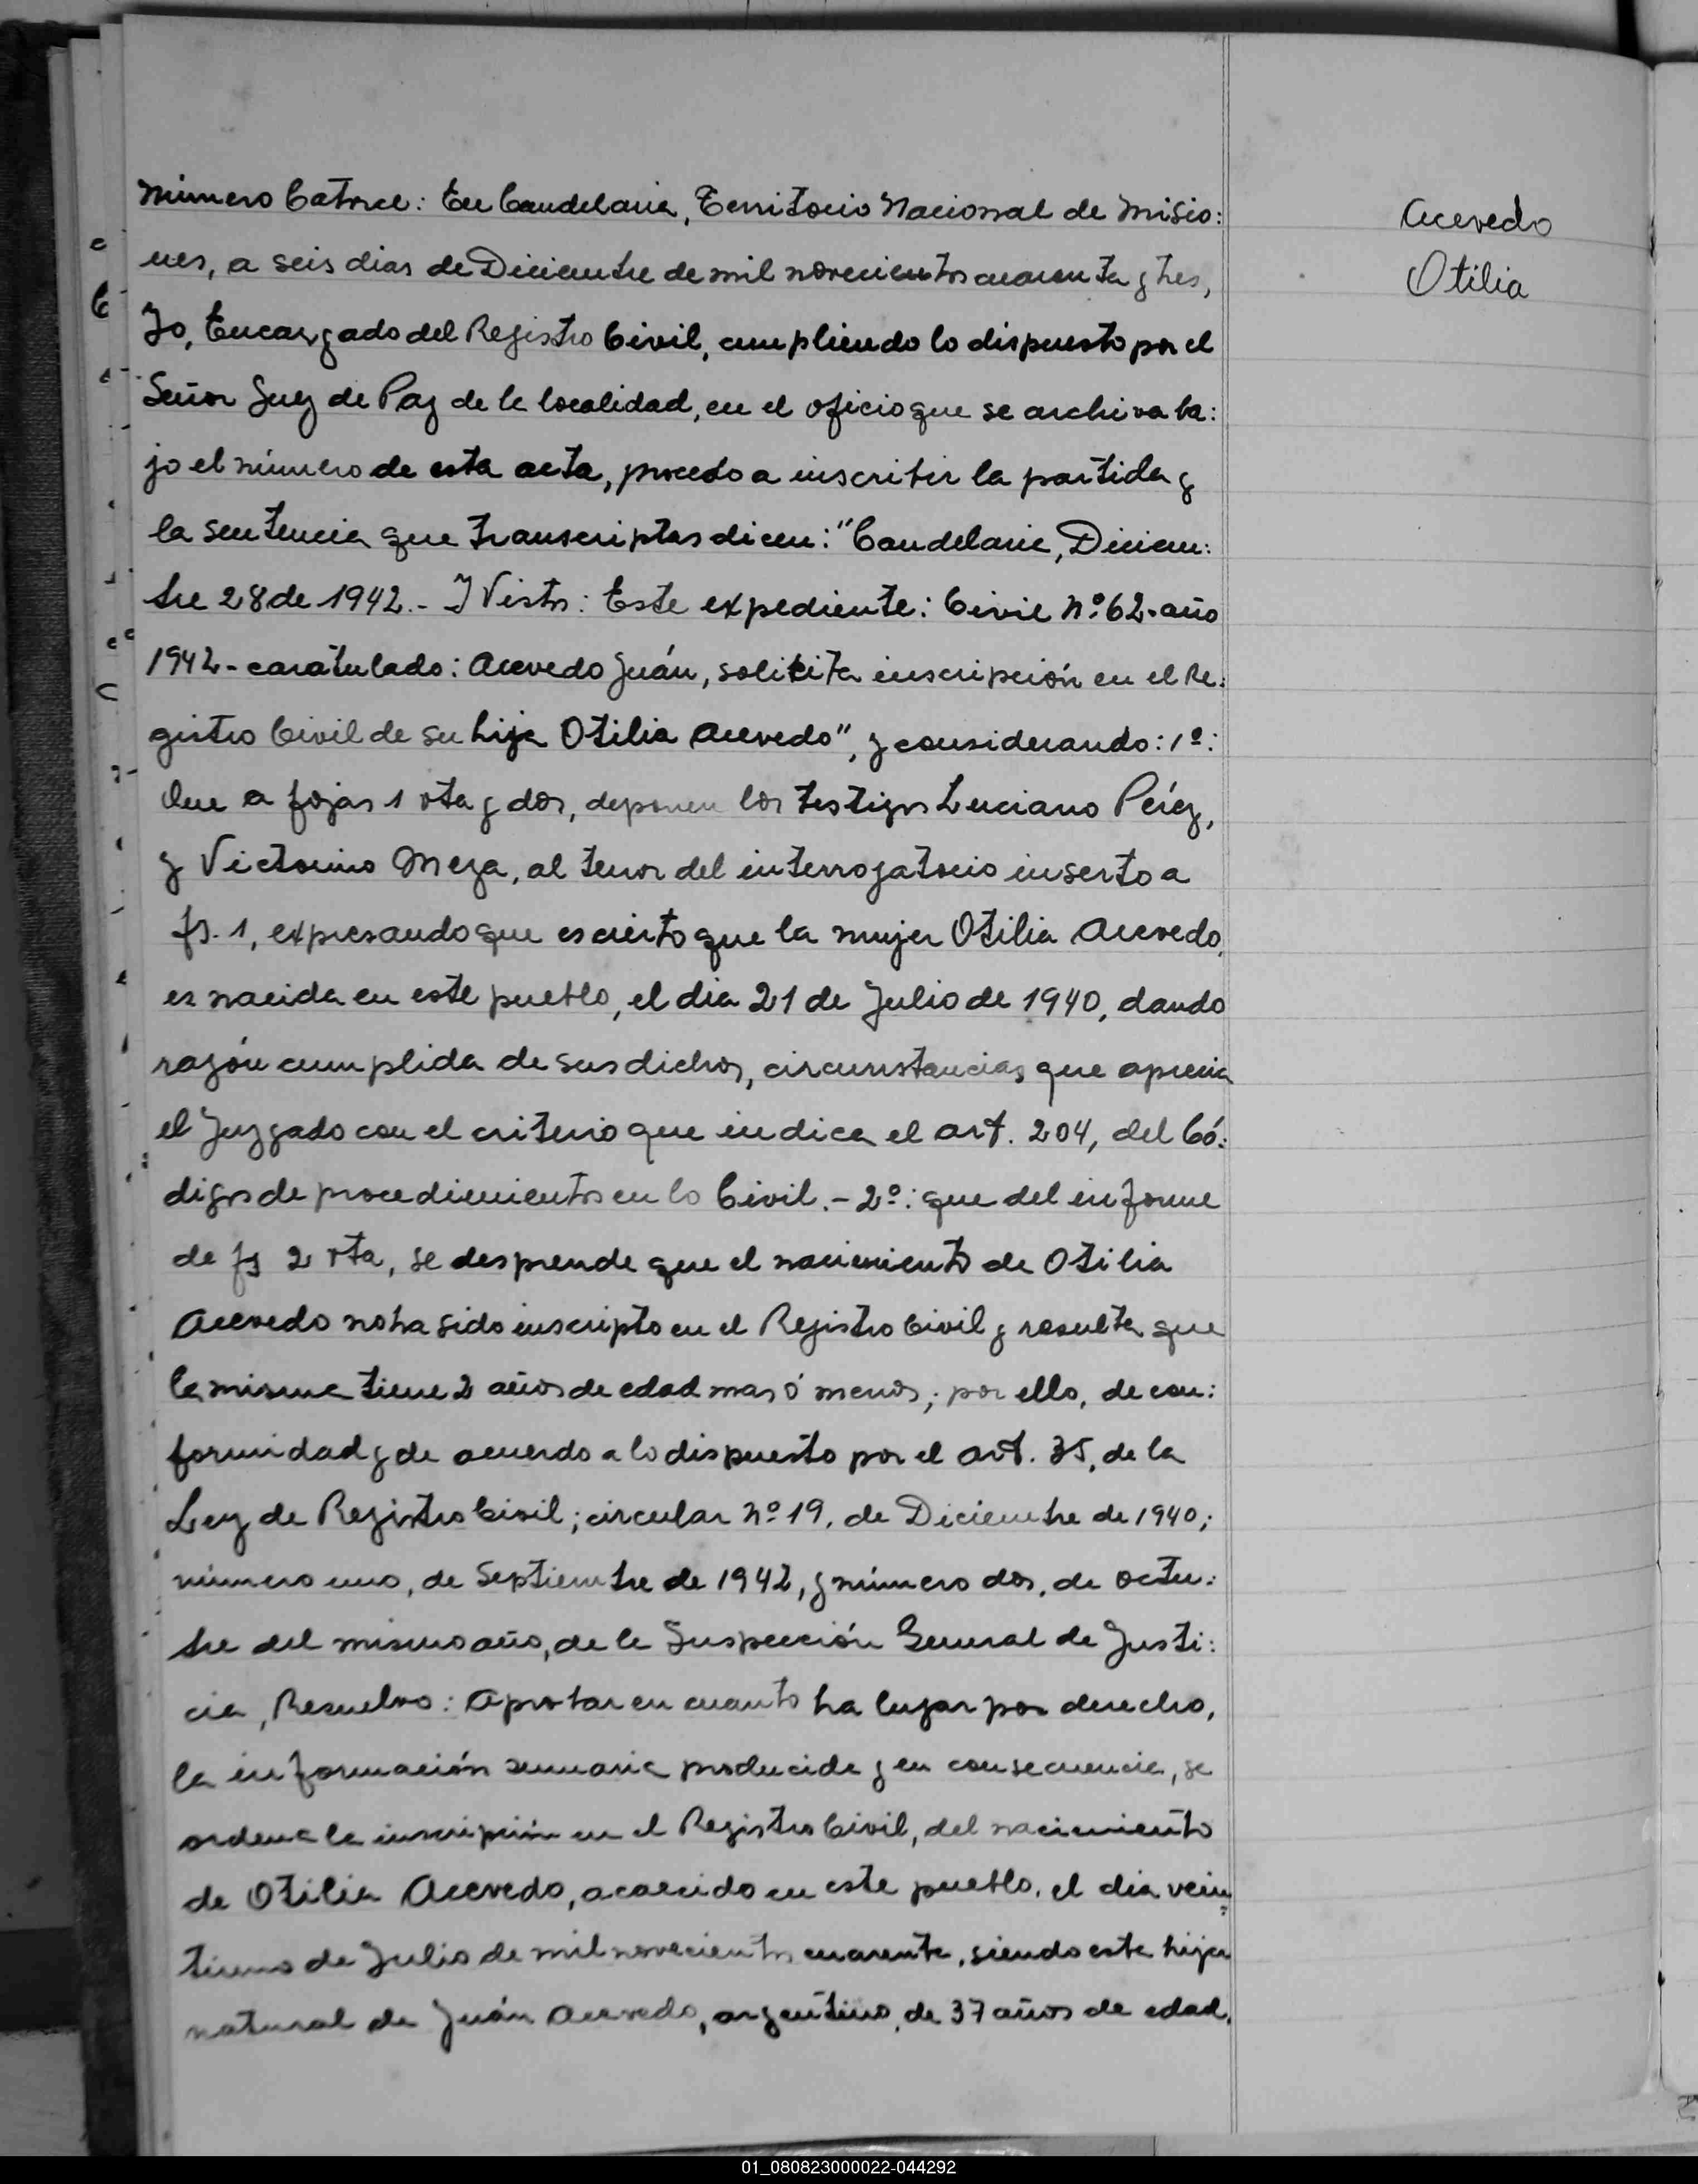 Número Catorce: En Candelaria, Territorio Nacional de Misio:
nes, a seis dias de Diciembre de mil novecientos cuarenta y tres,
Yo, Encargado del Registro Civil, cumpliendo lo dispuesto por el
Señor Juez de Paz de la localidad, en el oficio que se archiva ba:
jo el número de esta acta, procedo a inscribir la partida y
la sentencia que transcriptas dicen: "Candelaria, Diciem:
bre 28 de 1942.- Y Vistos: Este expediente: Civil Nº 62-año
1942-caratulado: Acevedo Juán, solicita inscripción en el Re:
gistro Civil de su hija Otilia Acevedo", y considerando: 1º:
Que a fojas 1 vta y dos, deponen los testigos Luciano Peréz,
y Victorino Meza, al tenor del interrogatorio inserto a
fs. 1, expresando que es cierto que la mujer Otilia Acevedo,
es nacida en este pueblo, el dia 21 de Julio de 1940, dando
razón cumplida de sus dichos, circunstancias que aprecia
el Juzgado con el criterio que indica el art. 204, del Có:
digo de procedimientos en lo Civil.- 2º: que del informe
de fs 2 vta, se desprende que el nacimiento de Otilia
Acevedo no ha sido inscripto en el Registro Civil y resulta que
la misma tiene 2 años de edad mas ó menos; por ello, de con:
formidad y de acuerdo a lo dispuesto por el art. 35, de la
Ley de Registro Civil; circular Nº 19, de Diciembre de 1940;
número uno, de Septiembre de 1942, y número dos, de octu:
bre del mismo año, de la Inspección General de Justi:
cia, Resuelvo: Aprobar en cuanto ha lugar por derecho,
la información sumaria producida y en consecuencia, se
ordena la inscripción en el Registro Civil, del nacimiento
de Otilia Acevedo, acaecido en este pueblo, el dia vein
tiuno de Julio de mil novecientos cuarenta, siendo esta hija
natural de Juán Acevedo, argentino, de 37 años de edad,
Acevedo
Otilia
01_080823000022-044292